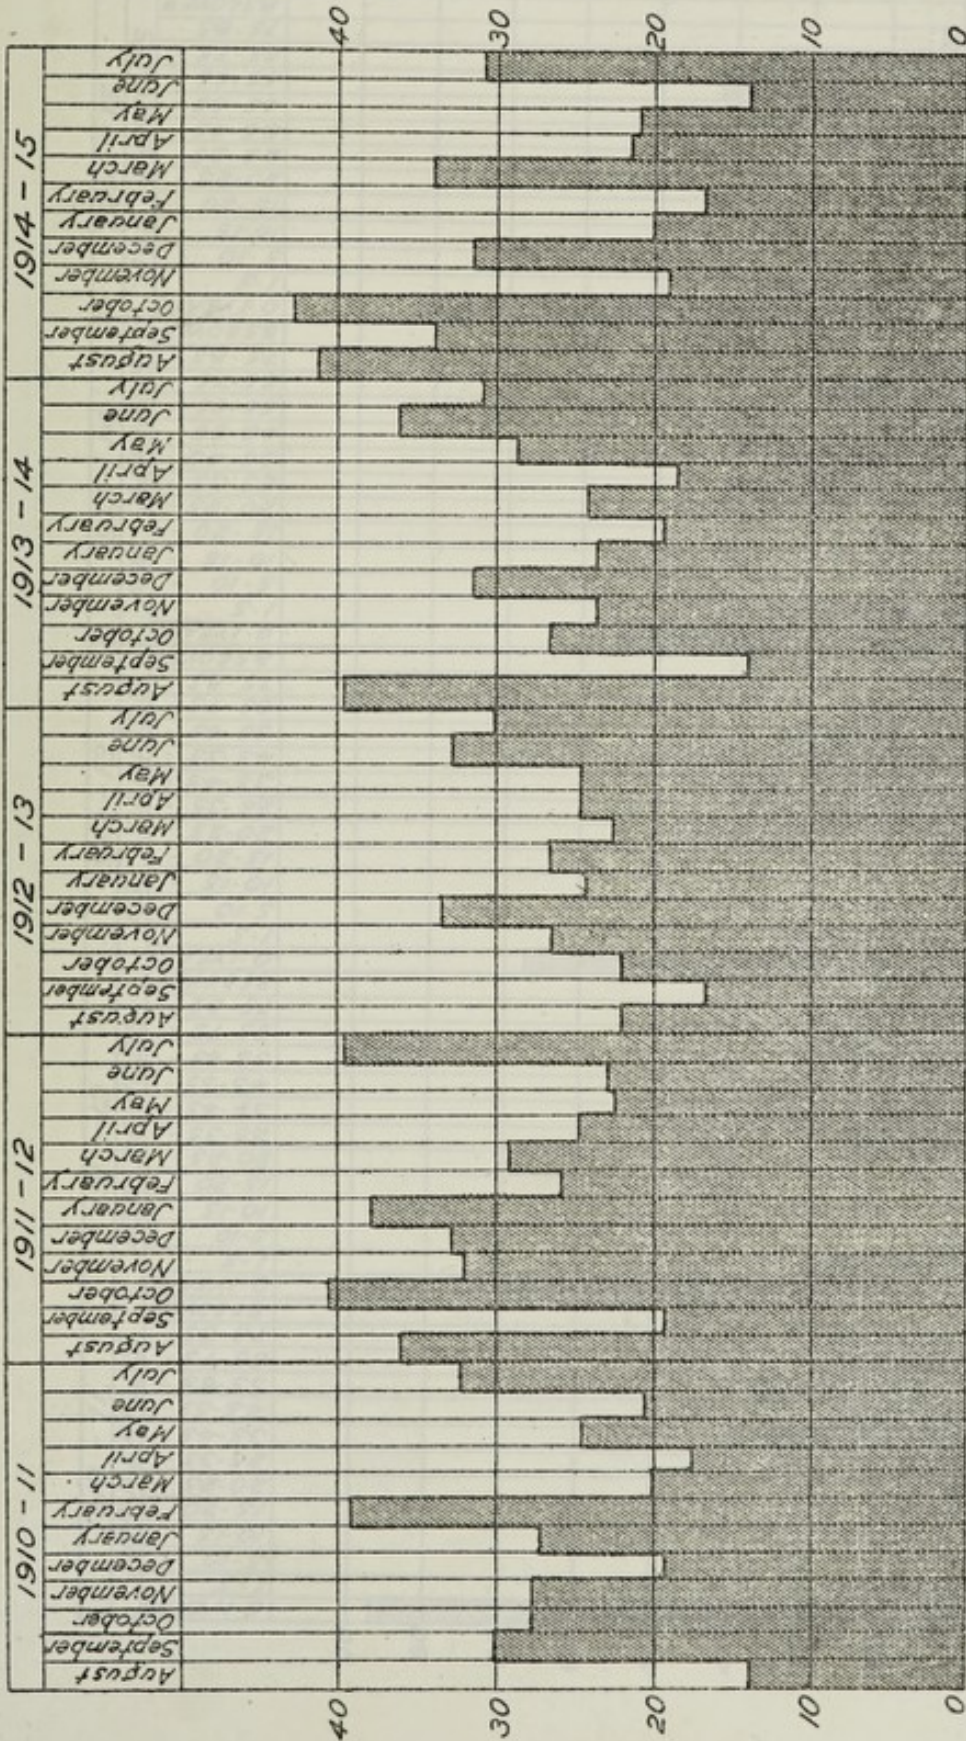 40 30 20 10 0
1910 - 11
August
September
October
November
December
January
February
March
April
May
June
July
1911 - 12
August
September
October
November
December
January
February
March
April
May
June
July
1912 - 13
August
September
October
November
December
January
February
March
April
May
June
July
1913 - 14
August
September
October
November
December
January
February
March
April
May
June
July
1914 - 15
August
September
October
November
December
January
February
March
April
May
June
July
40 30 20 10 0